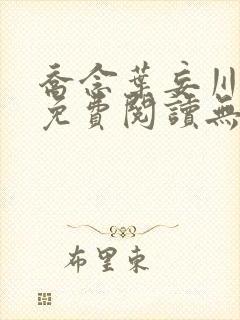 喬念葉妄川
免費閱讀無
布里東